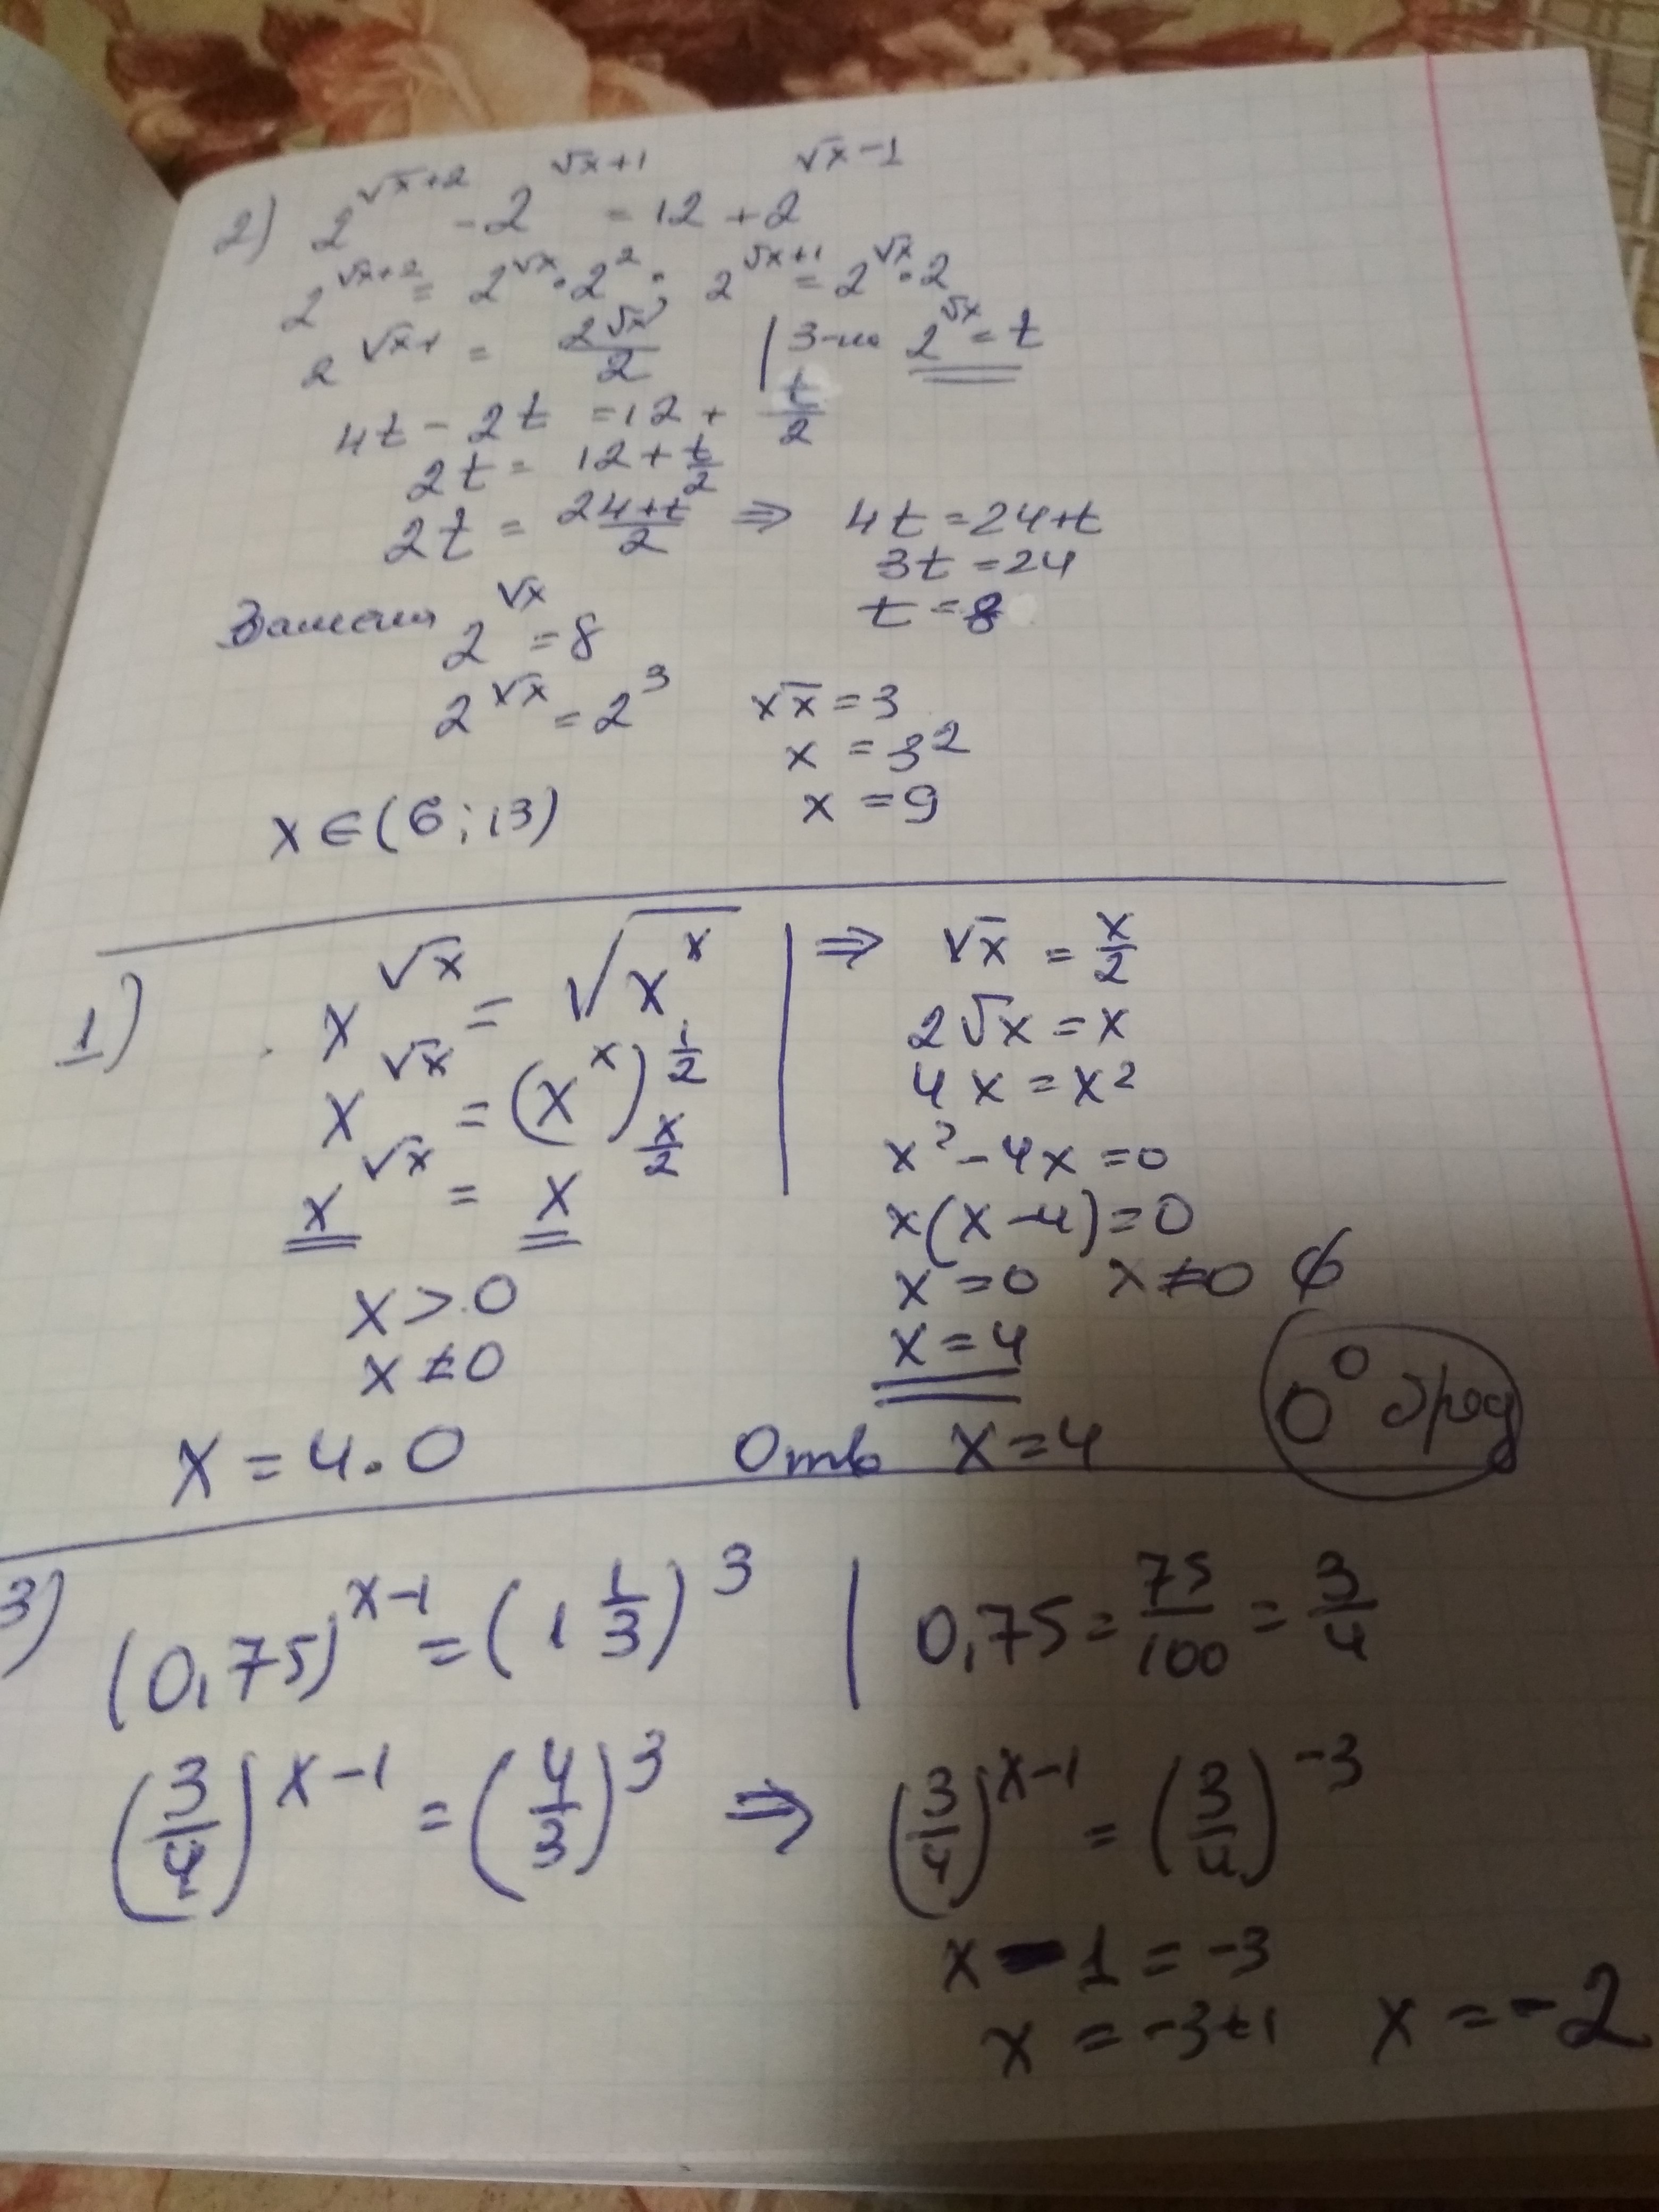 2) 2^(√x+2) - 2^(√x+1) = 12 + 2^(√x-1)
2^(√x+2) = 2^√x · 2² ; 2^(√x+1) = 2^√x · 2
2^(√x+ = 2^√x / 2 | 2^√x = t
4t - 2t = 12 + t/2
2t = 12 + t/2
2t = (24+t)/2 ⇒ 4t = 24+t
3t = 24
t = 8
2^√x = 8
2^√x = 2³ √x = 3
x = 3²
x = 9
x ∈ (6; 13)
1) x^√x = √(x^x) | ⇒ √x = x/2
x^√x = (x^x)^(1/2) 2√x = x
x^√x = x^(x/2) 4x = x²
x² - 4x = 0
x(x-4) = 0
x > 0 x = 0 x ≠ 0 ∅
x ≠ 0 x = 4
0⁰
x = 4.0 Отв x = 4
3) (0,75)^(x-1) = (1 1/3)³ | 0,75 = 75/100 = 3/4
(3/4)^(x-1) = (4/3)³ ⇒ (3/4)^(x-1) = (3/4)^(-3)
x - 1 = -3
x = -3+1 x = -2